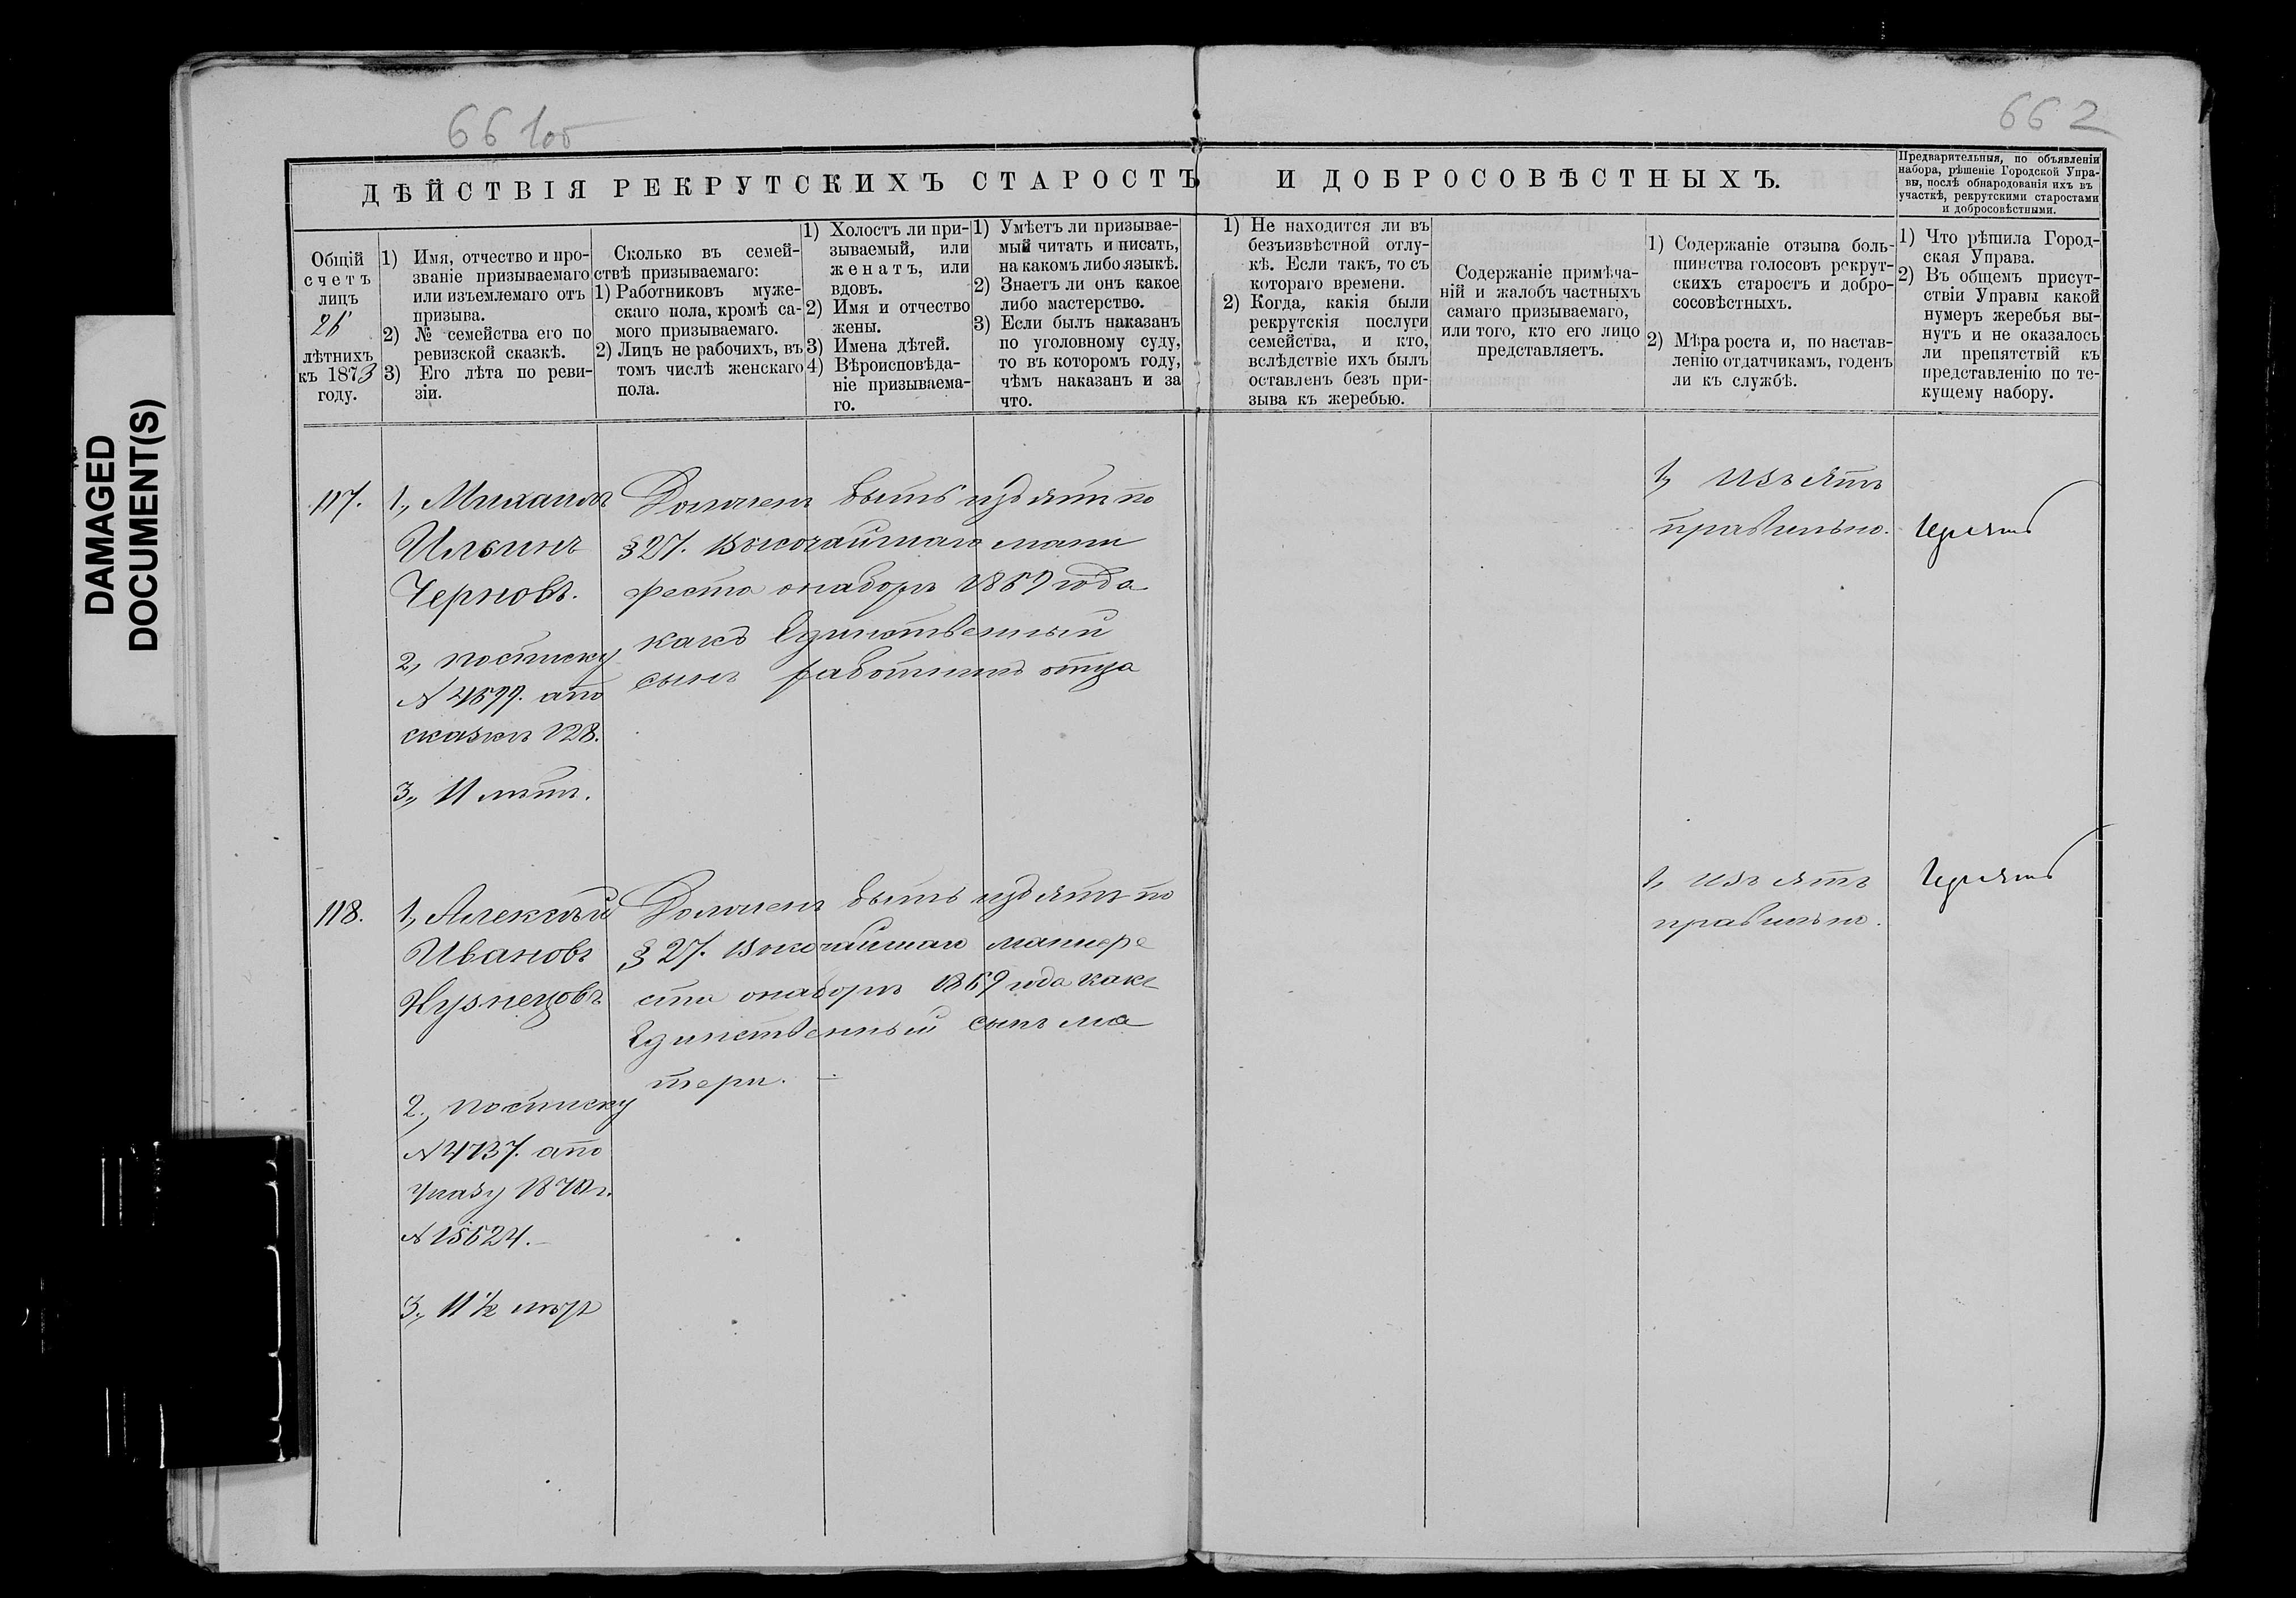 661об
662
DAMAGED
DOCUMENT(S)
ДѢЙСТВІЯ РЕКРУТСКИХЪ СТАРОСТЪ И ДОБРОСОВѢСТНЫХЪ.
Предварительныя, по объявленіи
набора, рѣшеніе Городской Упра-
вы, послѣ обнародованія ихъ въ
участкѣ, рекрутскими старостами
и добросовѣстными.
Общій
счетъ
лицъ
лѣтнихъ
къ 1873
году.
1) Имя, отчество и про-
званіе призываемаго
или изъемлемаго отъ
призыва.
2) № семейства его по
ревизской сказкѣ.
3) Его лѣта по реви-
зіи.
Сколько въ семей-
ствѣ призываемаго:
1) Работниковъ муже-
скаго пола, кромѣ са-
мого призываемаго.
2) Лицъ не рабочихъ, въ
томъ числѣ женскаго
пола.
1) Холостъ ли при-
зываемый, или
женатъ, или
вдовъ.
2) Имя и отчество
жены.
3) Имена дѣтей.
4) Вѣроисповѣда-
ніе призываема-
го.
1) Умѣетъ ли призывае-
мый читать и писать,
на какомъ либо языкѣ.
2) Знаетъ ли онъ какое
либо мастерство.
3) Если былъ наказанъ
по уголовному суду,
то въ которомъ году,
чѣмъ наказанъ и за
что.
1) Не находится ли въ
безъизвѣстной отлу-
кѣ. Если такъ, то съ
котораго времени.
2) Когда, какія были
рекрутскія послуги
семейства, и кто,
вслѣдствіе ихъ былъ
оставленъ безъ при-
зыва къ жеребью.
Содержаніе примѣча-
ній и жалобъ частныхъ
самаго призываемаго,
или того, кто его лицо
представляетъ.
1) Содержаніе отзыва боль-
шинства голосовъ рекрут-
скихъ старостъ и добро-
совѣстныхъ.
2) Мѣра роста и, по настав-
ленію отдатчикамъ, годенъ
ли къ службѣ.
1) Что рѣшила Город-
ская Управа.
2) Въ общемъ присут-
ствіи Управы какой
нумеръ жеребья вы-
нутъ и не оказалось
ли препятствій къ
представленію по те-
кущему набору.
117.
1., Михаилъ
Ильинъ
Черновъ.
2., по списку
№ 4599. а по
сказкѣ 128.
3., 11 лѣтъ.
Долженъ быть изъятъ по
§ 27. Высочайшаго мани
феста о наборѣ 1869 года
какъ Единственный
сынъ работникъ отца
1, Изъятъ
правильно.
Изъять
118.
1., Алексѣй
Ивановъ
Кузнецовъ
2., по списку
№ 4737. а по
Указу 1870 г.
№ 15624.
3., 11 ½ лѣтъ
Долженъ быть изъятъ по
§ 27. Высочайшаго манифе
ста о наборѣ 1869 года какъ
Единственный сынъ ма
тери.
1, Изъятъ
правильно.
Изъять